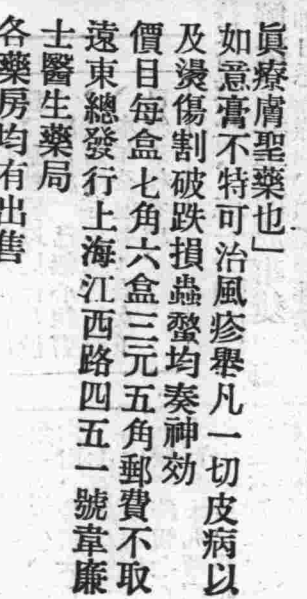 眞療膚聖藥也」
如意膏不特可治風疹舉凡一切皮病以
及燙傷割破跌損蟲螫均奏神効
價目每盒七角六盒三元五角郵費不取
遠東總發行上海江西路四五一號韋廉
士醫生藥局
各藥房均有出售